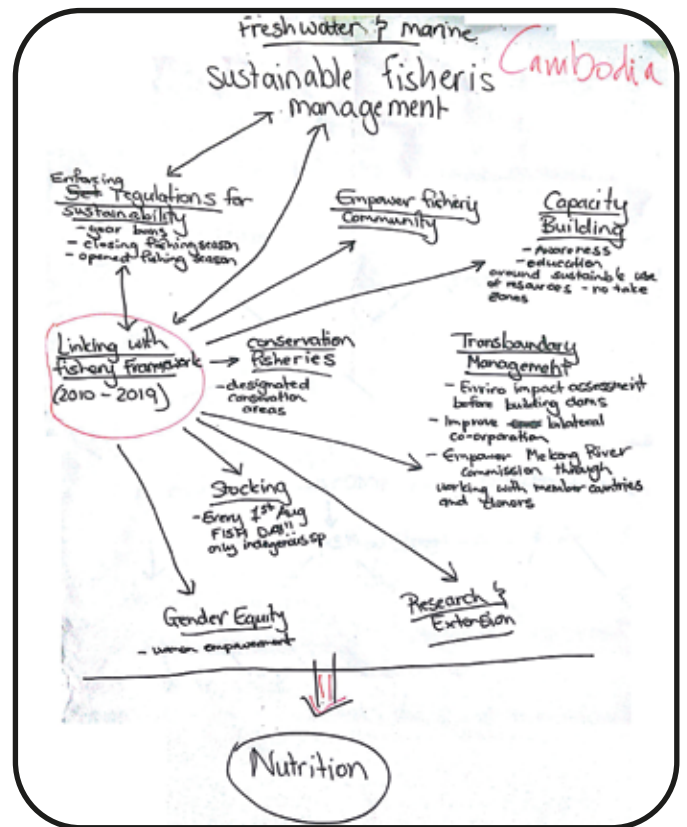 Freshwater & marine
Cambodia
sustainable fisheris
management
Enforcing
Set regulations for
sustainability
- gear bans
- closing fishing season
- opened fishing season
Empower fishery
Community
Capacity
Building
- Awareness
- education
around sustainable use
of resources - no take
zones
Linking with
fishery framework
(2010 - 2019)
conservation
fisheries
- designated
conservation
areas
Transboundary
Management
- Enviro impact assessment
before building dams
- Improve bilateral
co-orporation
- Empower Mekong River
commission through
working with member countries
and donors
Stocking
- Every 1st Aug
FISH DAY!!
only indegenous sp
Gender Equity
- women empowerment
Research &
Extension
Nutrition